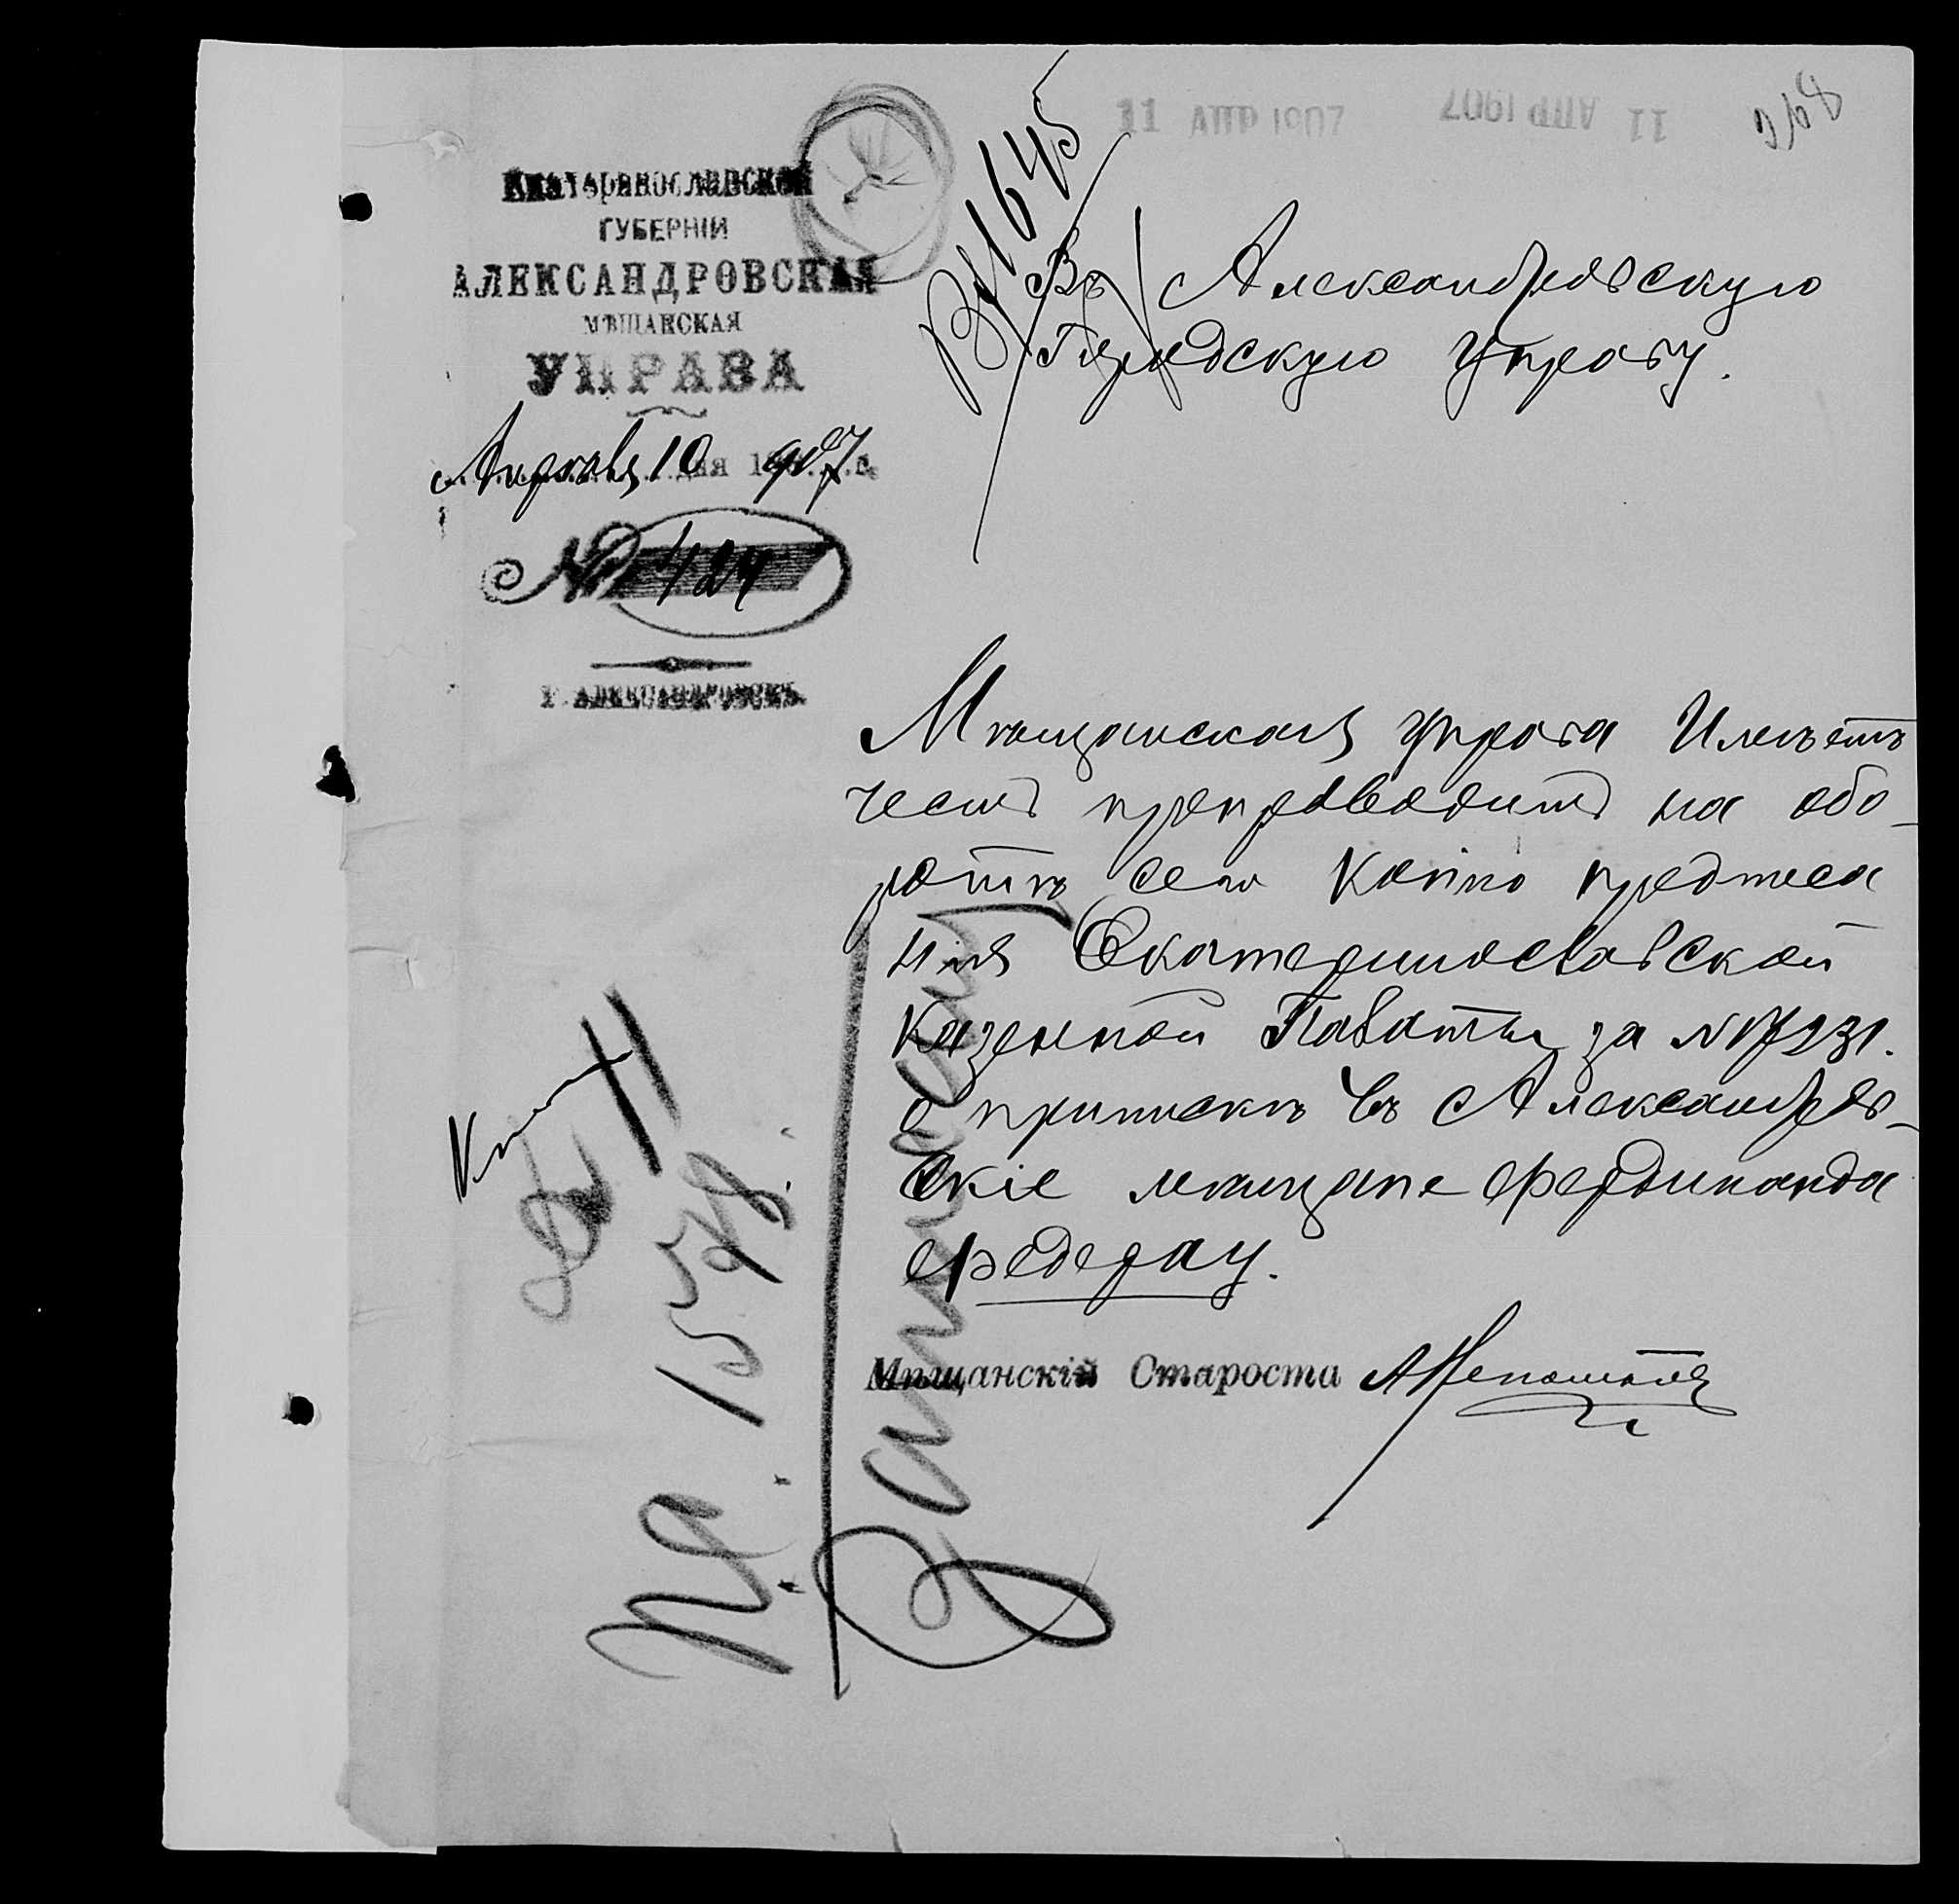 11 АПР 1907
11 АПР 1907
268
Екатеринославской
ГУБЕРНІИ
АЛЕКСАНДРОВСКАЯ
МѢЩАНСКАЯ
УПРАВА
Апрѣля 10 дня 1907 г.
№ 424
Г. АЛЕКСАНДРОВСКЪ.
Вх 1645
Въ Александровскую
Городскую Управу.
Мѣщанская управа Имѣетъ
честь препроводить на обо-
ротѣ сего Копію предписа
нія Екатеринославской
Казенной Палаты за №
о припискѣ въ Александров-
скіе мѣщане Фердинанда
Федерау.
Мѣщанскій Староста